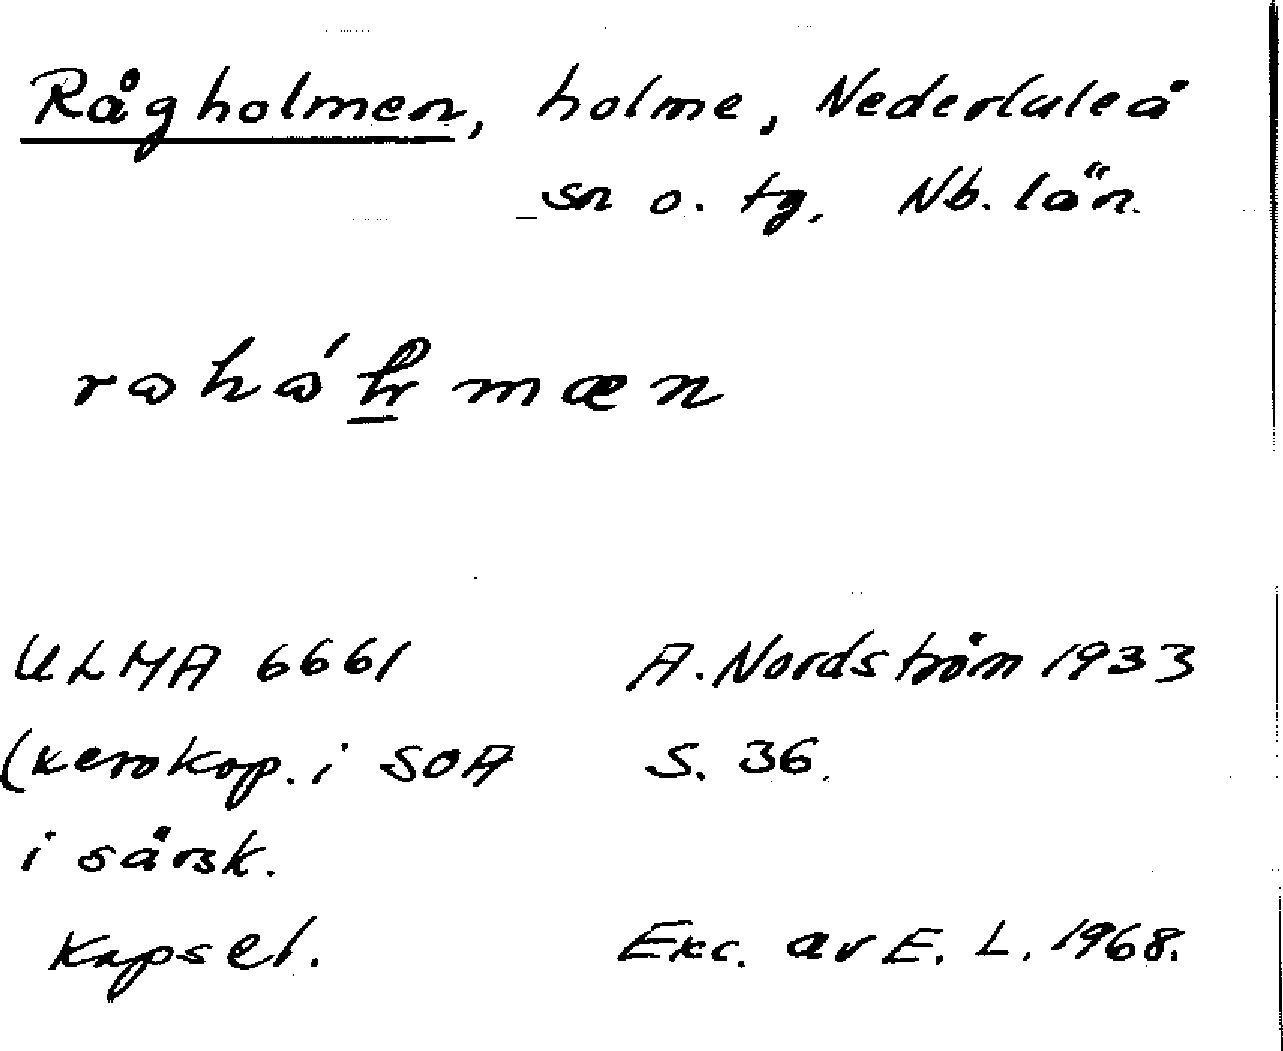 Rågholmen, holme, Nederluleå
sn o. tg, Nb. län.
mæn
ULMA 6661 A. Nordström 1933
(xerokop. i SOA S. 36.
i särsk.
Kapsel. Exc. av E. L. 1968.